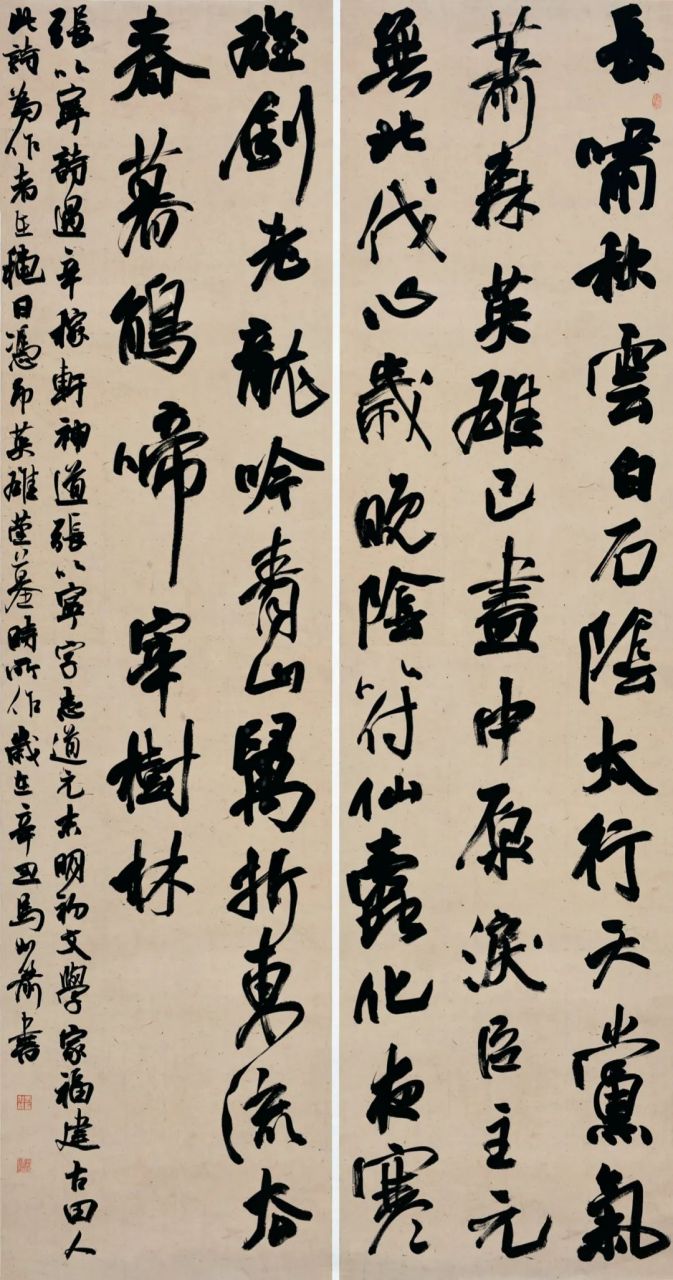 長嘯秋雲白石陰太行天黨氣
蕭森英雄已盡中原淚臣主元
無北伐心歲晚陰符仙蠹化夜寒
雄劍老龍吟青山萬折東流去
春暮鵑啼宰樹林
張以寧詩過辛稼軒神道張以寧字志道元末明初文學家福建古田人
此詩為作者在穐日憑吊英雄塋墓時所作歲在辛丑馬書